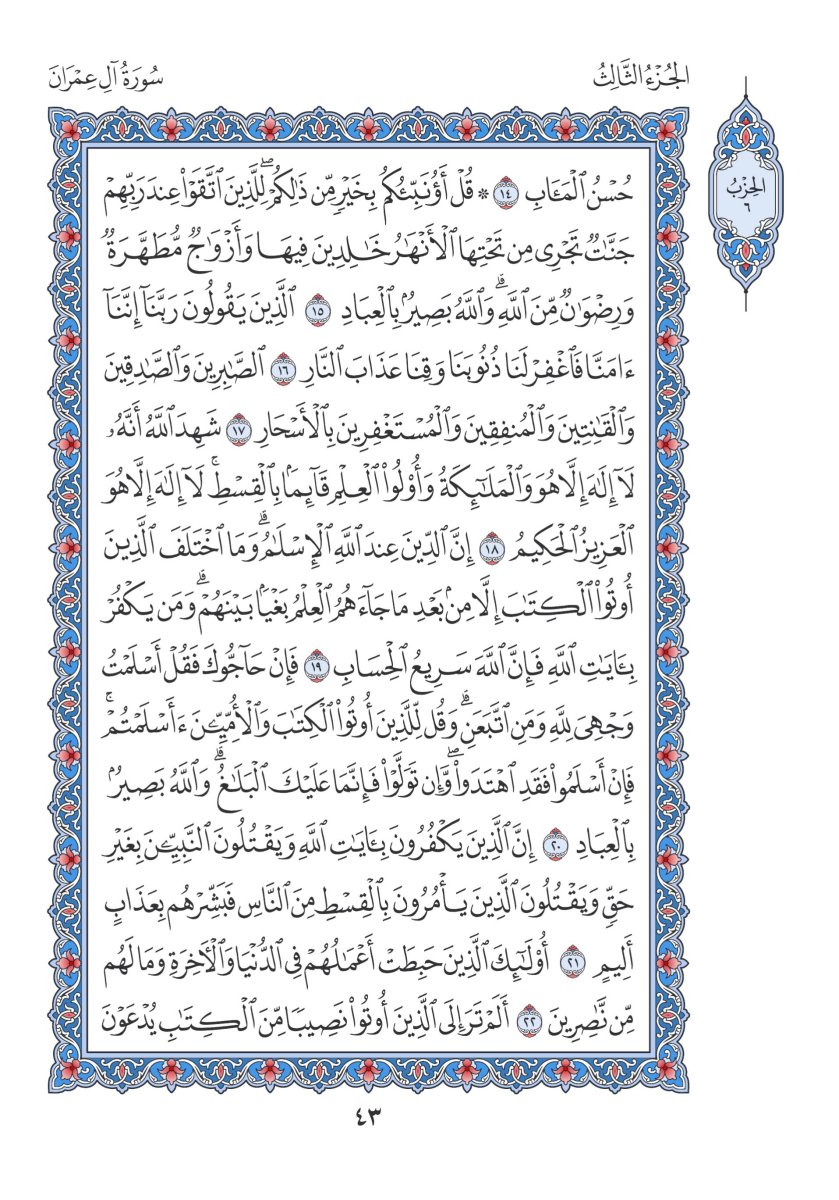 الجُزْءُ الثَّالِثُ
سُورَةُ آلِ عِمْرَانَ
الحِزْبُ
٦
حُسْنُ ٱلْمَـَٔابِ ١٤ * قُلْ أَؤُنَبِّئُكُم بِخَيْرٍ مِّن ذَٰلِكُمْۖ لِلَّذِينَ ٱتَّقَوْا۟ عِندَ رَبِّهِمْ
جَنَّـٰتٌ تَجْرِى مِن تَحْتِهَا ٱلْأَنْهَـٰرُ خَـٰلِدِينَ فِيهَا وَأَزْوَٰجٌ مُّطَهَّرَةٌ
وَرِضْوَٰنٌ مِّنَ ٱللَّهِۗ وَٱللَّهُ بَصِيرٌۢ بِٱلْعِبَادِ ١٥ ٱلَّذِينَ يَقُولُونَ رَبَّنَآ إِنَّنَآ
ءَامَنَّا فَٱغْفِرْ لَنَا ذُنُوبَنَا وَقِنَا عَذَابَ ٱلنَّارِ ١٦ ٱلصَّـٰبِرِينَ وَٱلصَّـٰدِقِينَ
وَٱلْقَـٰنِتِينَ وَٱلْمُنفِقِينَ وَٱلْمُسْتَغْفِرِينَ بِٱلْأَسْحَارِ ١٧ شَهِدَ ٱللَّهُ أَنَّهُۥ
لَآ إِلَـٰهَ إِلَّا هُوَ وَٱلْمَلَـٰٓئِكَةُ وَأُو۟لُوا۟ ٱلْعِلْمِ قَآئِمًۢا بِٱلْقِسْطِۚ لَآ إِلَـٰهَ إِلَّا هُوَ
ٱلْعَزِيزُ ٱلْحَكِيمُ ١٨ إِنَّ ٱلدِّينَ عِندَ ٱللَّهِ ٱلْإِسْلَـٰمُۗ وَمَا ٱخْتَلَفَ ٱلَّذِينَ
أُوتُوا۟ ٱلْكِتَـٰبَ إِلَّا مِنۢ بَعْدِ مَا جَآءَهُمُ ٱلْعِلْمُ بَغْيًۢا بَيْنَهُمْۗ وَمَن يَكْفُرْ
بِـَٔايَـٰتِ ٱللَّهِ فَإِنَّ ٱللَّهَ سَرِيعُ ٱلْحِسَابِ ١٩ فَإِنْ حَآجُّوكَ فَقُلْ أَسْلَمْتُ
وَجْهِىَ لِلَّهِ وَمَنِ ٱتَّبَعَنِۗ وَقُل لِّلَّذِينَ أُوتُوا۟ ٱلْكِتَـٰبَ وَٱلْأُمِّيِّـۧنَ ءَأَسْلَمْتُمْۚ
فَإِنْ أَسْلَمُوا۟ فَقَدِ ٱهْتَدَوا۟ۖ وَّإِن تَوَلَّوْا۟ فَإِنَّمَا عَلَيْكَ ٱلْبَلَـٰغُۗ وَٱللَّهُ بَصِيرٌۢ
بِٱلْعِبَادِ ٢٠ إِنَّ ٱلَّذِينَ يَكْفُرُونَ بِـَٔايَـٰتِ ٱللَّهِ وَيَقْتُلُونَ ٱلنَّبِيِّـۧنَ بِغَيْرِ
حَقٍّ وَيَقْتُلُونَ ٱلَّذِينَ يَأْمُرُونَ بِٱلْقِسْطِ مِنَ ٱلنَّاسِ فَبَشِّرْهُم بِعَذَابٍ
أَلِيمٍ ٢١ أُو۟لَـٰٓئِكَ ٱلَّذِينَ حَبِطَتْ أَعْمَـٰلُهُمْ فِى ٱلدُّنْيَا وَٱلْـَٔاخِرَةِ وَمَا لَهُم
مِّن نَّـٰصِرِينَ ٢٢ أَلَمْ تَرَ إِلَى ٱلَّذِينَ أُوتُوا۟ نَصِيبًا مِّنَ ٱلْكِتَـٰبِ يُدْعَوْنَ
٤٣